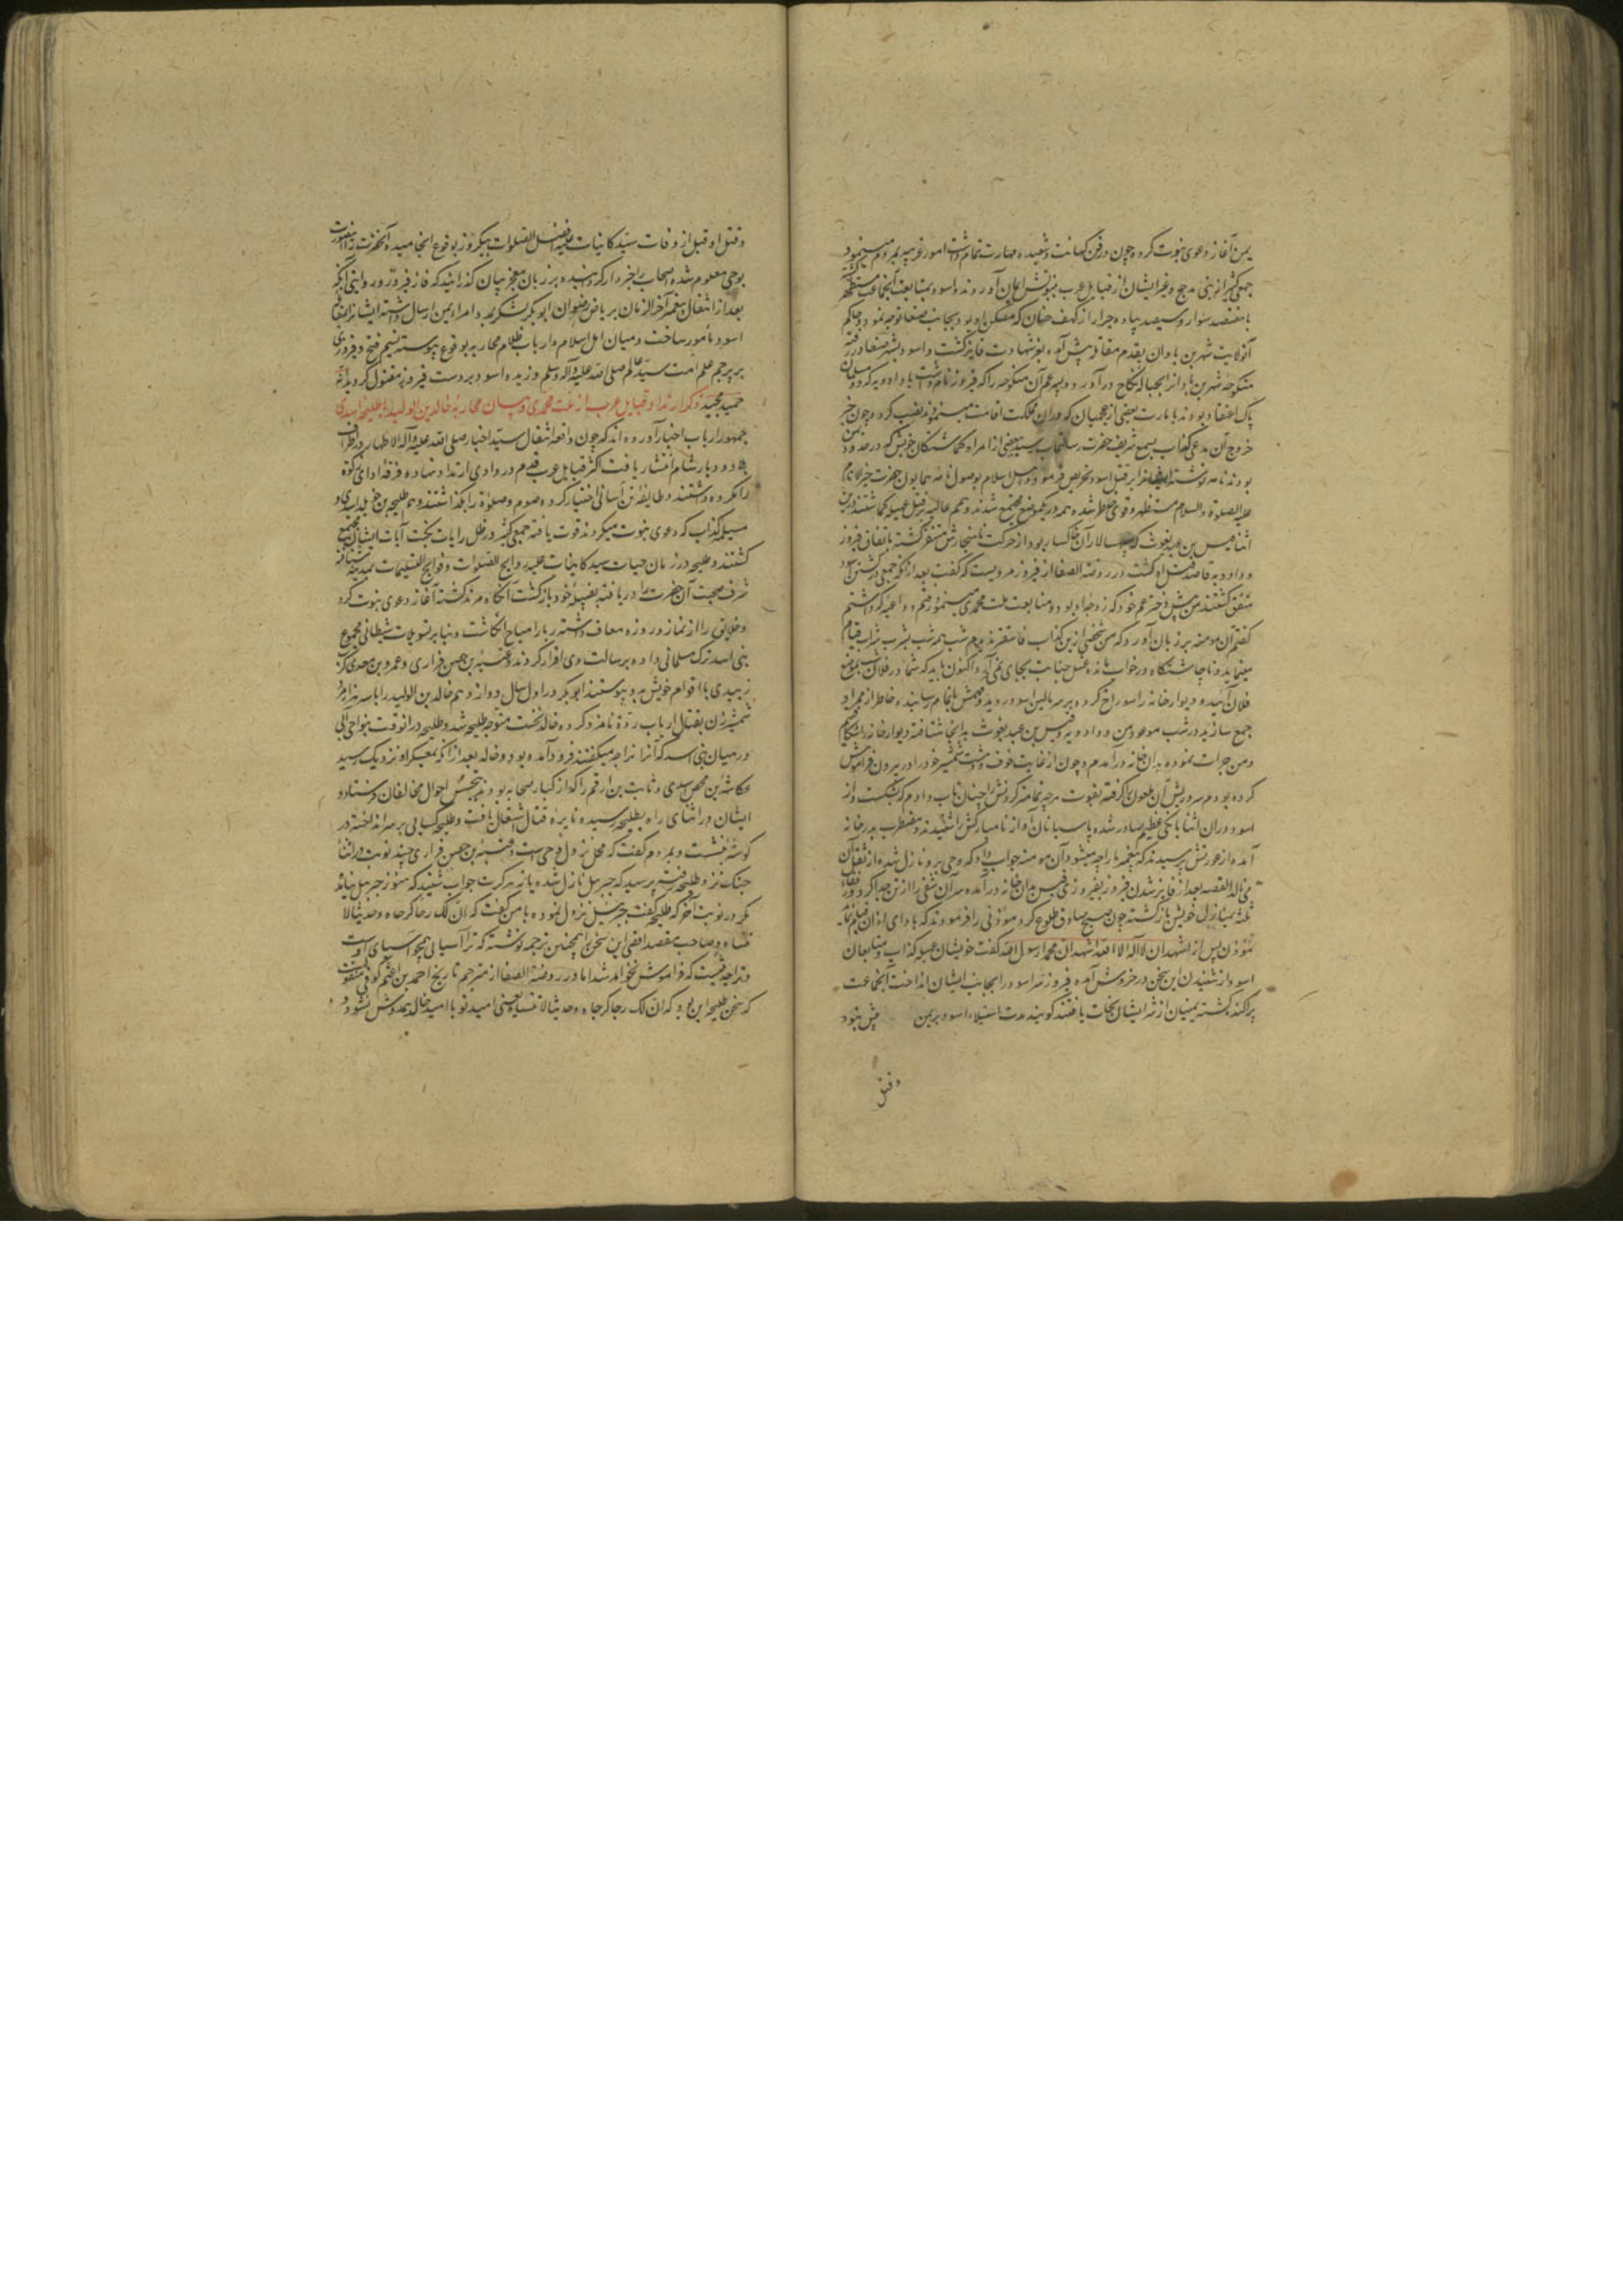 یمن آغاز دعوی نبوت کرد و چون در فن کهانت و شعبده مهارت تمام داشت امور غریبه بمردم مینمود
جمعی کثیر از بنی مدحج و غیر ایشان از قبایل عرب بنبوتش ایمان آوردند و اسود بمتابعت آنجماعت مستظهر گشته
با هفتصد سوار و سیصد پیاده جرار از کهف خبان که مسکن او بود بجانب صنعا توجه نمود و حاکم
آنولایت شهر بن باذان بقدم مقاتله پیش آمده بعز شهادت فایز گشت و اسود بشهر صنعا در رفته
منکوحهٔ شهر بن باذانرا بحباله نکاح درآورد و پسر عم آن منکوحه را که فیروز نام داشت با دادویه که دو مسلمان
پاک اعتقاد بودند بامارت بعضی از عجمیان که دران مملکت اقامت مینمودند نصب کرد و چون خبر
خروج آن مدعی کذاب بسمع شریف حضرت رسالتماب رسید ببعضی از امرا و گماشتگان خویش که در حدود یمن
بودند نامه نوشته ایشانرا بر قتل اسود تحریص فرمود و اهل اسلام بوصول نامه همایون حضرت خیر الانام
علیه الصلوة والسلام مستظهر و قوی خاطر شده همه در یکموضع مجتمع شدند و همم عالیه بر قتل عبهله گماشتند درین
اثنا قیس بن عبد یغوث که سپهسالار آن خاکسار بود از حرکت ناهنجارش متنفر گشته باتفاق فیروز
و دادویه قاصد قتل او گشت در روضة الصفا از فیروز مرویست که گفت بعد از آنکه جمعی در کشتن اسود
متفق گشتند من پیش دختر عم خود که زوجه او بود و متابعت ملت محمدی مینمود رفتم و داعیه که داشتم
گفتم آن مومنه بر زبان آورد که من شخصی ازین کذاب فاسقتر ندیدم شب همه شب بشرب شراب قیام
مینماید و تا چاشتگاه در خواب مانده غسل جنابت بجای نمی آرد و اکنون باید که شما در فلان شب بموضع
فلان آئید و دیوار خانه را سوراخ کرده بر سر بالین اسود روید و مهمش بانجام رسانیده خاطر از ممر او
جمع سازید در شب موعود من و دادویه و قیس بن عبد یغوث بدانجا شتافته دیوار خانه را شکافتیم
و من جرات نموده بدان خانه درآمدم و چون از غایت خوف و دهشت شمشیر خود را در بیرون فراموش
کرده بودم سر و ریش آن ملعون را گرفته بقوت هرچه تمامتر گردنش را چنان تاب دادم که بشکست و از
اسود دران اثنا بانگی عظیم صادر شده پاسبانان آواز نامبارکش را شنیدند و مضطرب بدر خانه
آمده از عورتش پرسیدند که پیغمبر ما را چه میشود آن مومنه جواب داد که وحی برو نازل شده از ثقل آن
می نالد القصه بعد از فایز شدن فیروز بفیروزی قیس بدان خانه درآمده سر آن شقی را از تن جدا کرد و رفقاء
ثلثه بمنازل خویش بازگشته چون صبح صادق طلوع کرد مؤذنی را فرمودند که بادای اذان قیام نماید
مؤذن پس از اشهد ان لا اله الا الله اشهد ان محمدا رسول الله گفت خویشان عبهله کذاب و متابعان
اسود از شنیدن این سخن در خروش آمده فیروز سر اسود را بجانب ایشان انداخت آنجماعت
پراکنده گشته یمنیان از شر ایشان نجات یافتند گویند مدت استیلاء اسود بر یمن بیش نبود
و قتل
و قتل او قبل از وفات سید کاینات علیه افضل الصلوات بیکروز بوقوع انجامیده آنحضرت را اینصورت
بوحی معلوم شده اصحاب را خبردار گردانیده بر زبان معجز بیان گذرانید که فاز فیروز و روایتی آنکه
بعد از انتقال پیغمبر آخر الزمان بریاض رضوان ابو بکر لشکر بمدد امراء یمن ارسال داشته ایشانرا بمقاتله
اسود مأمور ساخت و میان اهل اسلام و ارباب ظلام محاربه بوقوع پیوسته نسیم فتح و فیروزی
بر پرچم علم امت سید عالم صلی الله علیه وآله وسلم وزیده اسود بر دست فیروز مقتول گردید انه
حمید مجید ذکر ارتداد قبایل عرب از ملت محمدی و بیان محاربهٔ خالد بن الولید با طلیحه اسدی
جمهور ارباب اخبار آورده اند که چون واقعه انتقال سید اخیار صلی الله علیه وآله الاطهار در اطراف
بلاد و دیار شام انتشار یافت اکثر قبایل عرب قدم در وادی ارتداد نهاده فرقه ادای زکوة
را مکروه داشتند و طایفه تن آسانی اختیار کرده صوم و صلوة را بگذاشتند و هم طلیحه بن خویلد اسدی و
مسیلمه کذاب که دعوی نبوت میکردند قوت یافته جمعی کثیر در ظل رایات نکبت آیات ایشان مجتمع
گشتند و طلیحه در زمان حیات سید کاینات علیه روایح الصلوات و فوایح التسلیمات بمدینه شتافته
شرف صحبت آن حضرت را دریافته بقبیله خود بازگشت آنگاه مرتد گشته آغاز دعوی نبوت کرد
و خلایق را از نماز و روزه معاف داشته ربا را مباح انگاشت و بنابر تسویلات شیطانی مجموع
بنی اسد ترک مسلمانی داده برسالت وی اقرار کردند و عیینه بن حصن فزاری و عمرو بن معدی کرب
زبیدی با اقوام خویش بدو پیوستند ابو بکر در اول سال دوازدهم خالد بن الولید را با سه هزار مرد
شمشیر زن بقتال ارباب ردة نامزد کرده خالد نخست متوجه طلیحه شد و طلیحه در انوقت بنواحی آبی
در میان بنی اسد که آنرا بزاخه میگفتند فرود آمده بود و خالد بعد از آنکه بمعسکر او نزدیک رسید
عکاشه بن محصن اسدی و ثابت بن ارقم را که از کبار صحابه بودند بتجسس احوال مخالفان فرستاد و
ایشان در اثنای راه بطلیحه رسیده نایره قتال اشتعال یافت و طلیحه کسایی بر سر انداخته در
گوشه بنشست و بمردم گفت که محل نزول وحی است و عیینه بن حصن فزاری چند نوبت در اثنا
جنک نزد طلیحه رفته پرسید که جبرییل نازل شده یا نه هر کرت جواب شنید که هنوز جبرییل نیامد
مگر در نوبت آخر که طلیحه گفت جبرییل نزول نموده با من گفت که ان لک رحا کرحاه و حدیثا لا
تنساه و صاحب مقصد اقصی این سخن را همچنین ترجمه نوشته که ترا آسیایی همچو آسیای اوست
و ترا چیزیست که فراموش نخواهد شد اما در روضة الصفا از مترجم تاریخ احمد بن اعثم کوفی منقولست
که سخن طلیحه این بود که ان لک رجا کرجاه و حدیثا لا تنساه یعنی امید تو با امید خالد همدوش نشود و